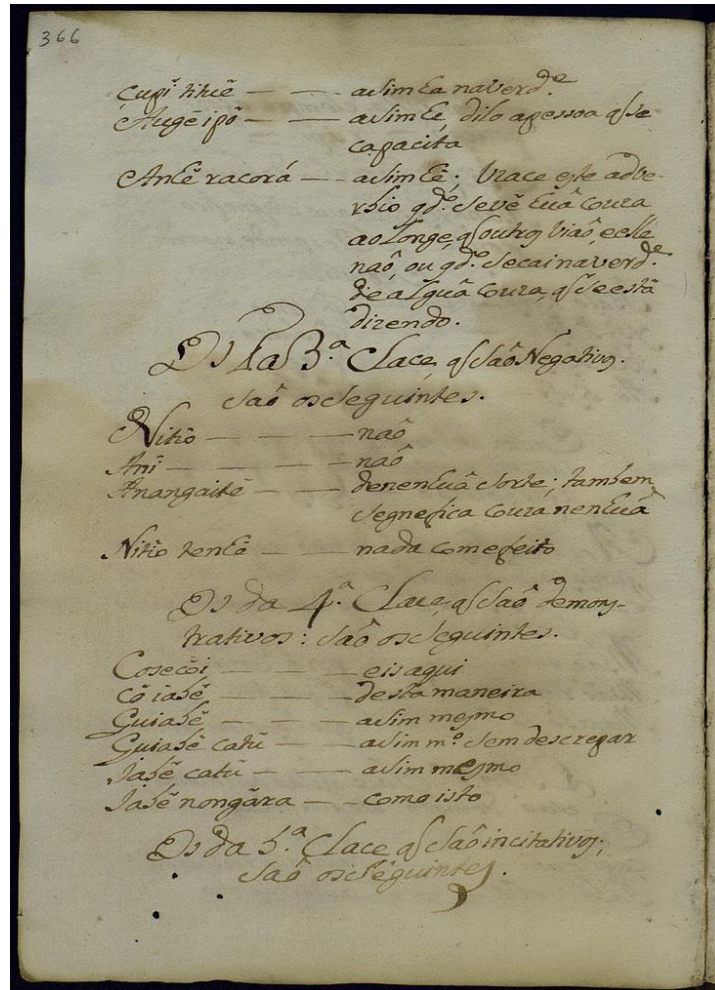 366
Çupĩ tituẽ — — asim ha na verd.e
Augẽ ipõ — — asim hé, dilo a pessoa q̃ se
capacita
Anhẽ racorá — asim hé; Uzace este adve-
rbio qd.o se vê huã couza
ao longe, q̃ outros viaõ, e elle
naõ, ou qd.o se cai na verd.e
de algua couza, q̃ se está
dizendo.
Os da 3.a Clace, q̃ saõ Negativos.
saõ os seguintes.
Nitiõ — — — naõ
Anĩ — — — — naõ
Anangaitẽ — — de nenhuã sorte; tambem
segnefica couza nenhuã
Nitiõ tenhẽ — — nada com efeito
Os da 4.a Clace, q̃ saõ demons-
trativos: saõ os seguintes.
Cosecõi — — — eis aqui
Cõ iabẽ — — — desta maneira
Guiabẽ — — — asim mesmo
Guiabẽ catũ — — asim m.o sem descrepar
Iabẽ catũ — — asim mesmo
Iabẽ nongára — — como isto
Os da 5.a Clace q̃ saõ incitativos;
saõ os seguintes.